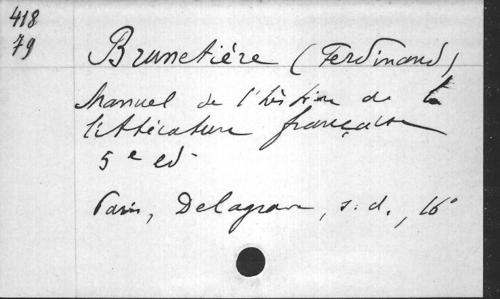 418
79
Brunetière (Ferdinand)
Manuel de l'histoire de la
littérature française
5e ed
Paris, Delagrave, s. d., 16°